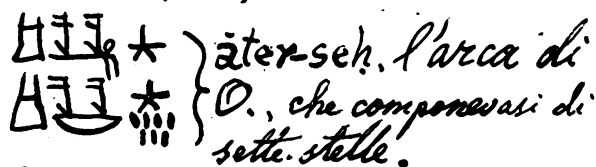 āter-seḥ, l'arca di
O., che componevasi di
sette stelle.